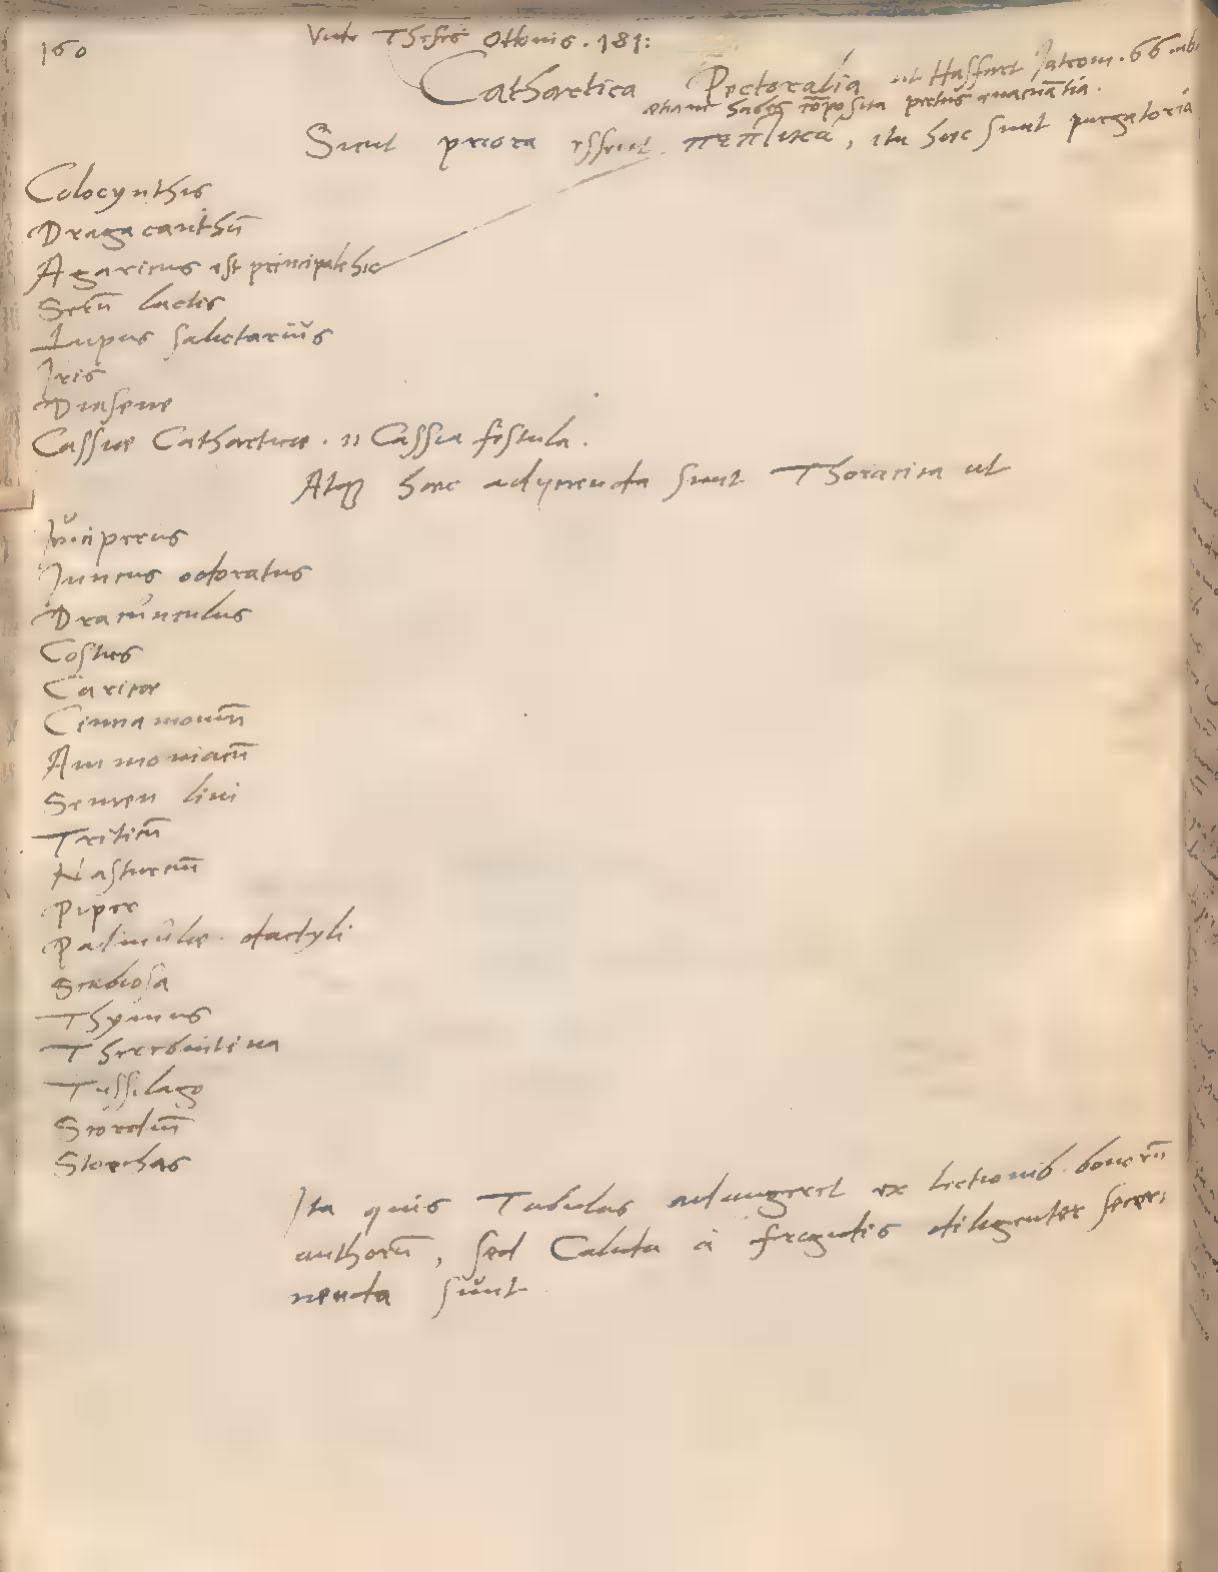 160
Vide Theses Ottonis . 181:
Cathartica Pectoralia ut Haffurt Iatrom . 66 ubi
etiam habes cōposita pectus evacuātia .
Sicut priora essent πεπτικά, ita haec sunt purgatoria
Colocynthis
Dragacanthū
Agaricus est principale hic
Serū lactis
Lupus salictarius
Iris
Diasene
Cassiae Catharticae . n Cassia fistula .
Atq haec adijcienda sunt Thoracica ut
Iuniperus
Iuncus odoratus
Dracunculus
Costus
Caricae
Cinnamomū
Ammoniacū
Semen lini
Triticū
Nasturciū
Piper
Palmulae . dactyli
Scabiosa
Thymus
Therebintina
Tussilago
Scordiū
Stoechas
Ita quis Tabulas adaugeret ex lectionib . bonorū
authorū, sed Calida à frigidis diligenter secer,
nenda sunt